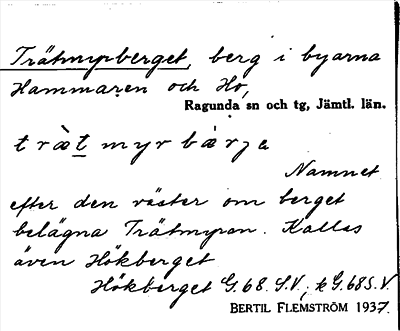 Trätmyrberget, berg i byarna
Hammaren och Ho,
Ragunda sn och tg, Jämtl. län.
tràt myr bárja
Namnet
efter den väster om berget
belägna Trätmyran. Kallas
även Hökberget
Hökberget G.68.S.V.; k G.68 S.V.
BERTIL FLEMSTRÖM 1937.